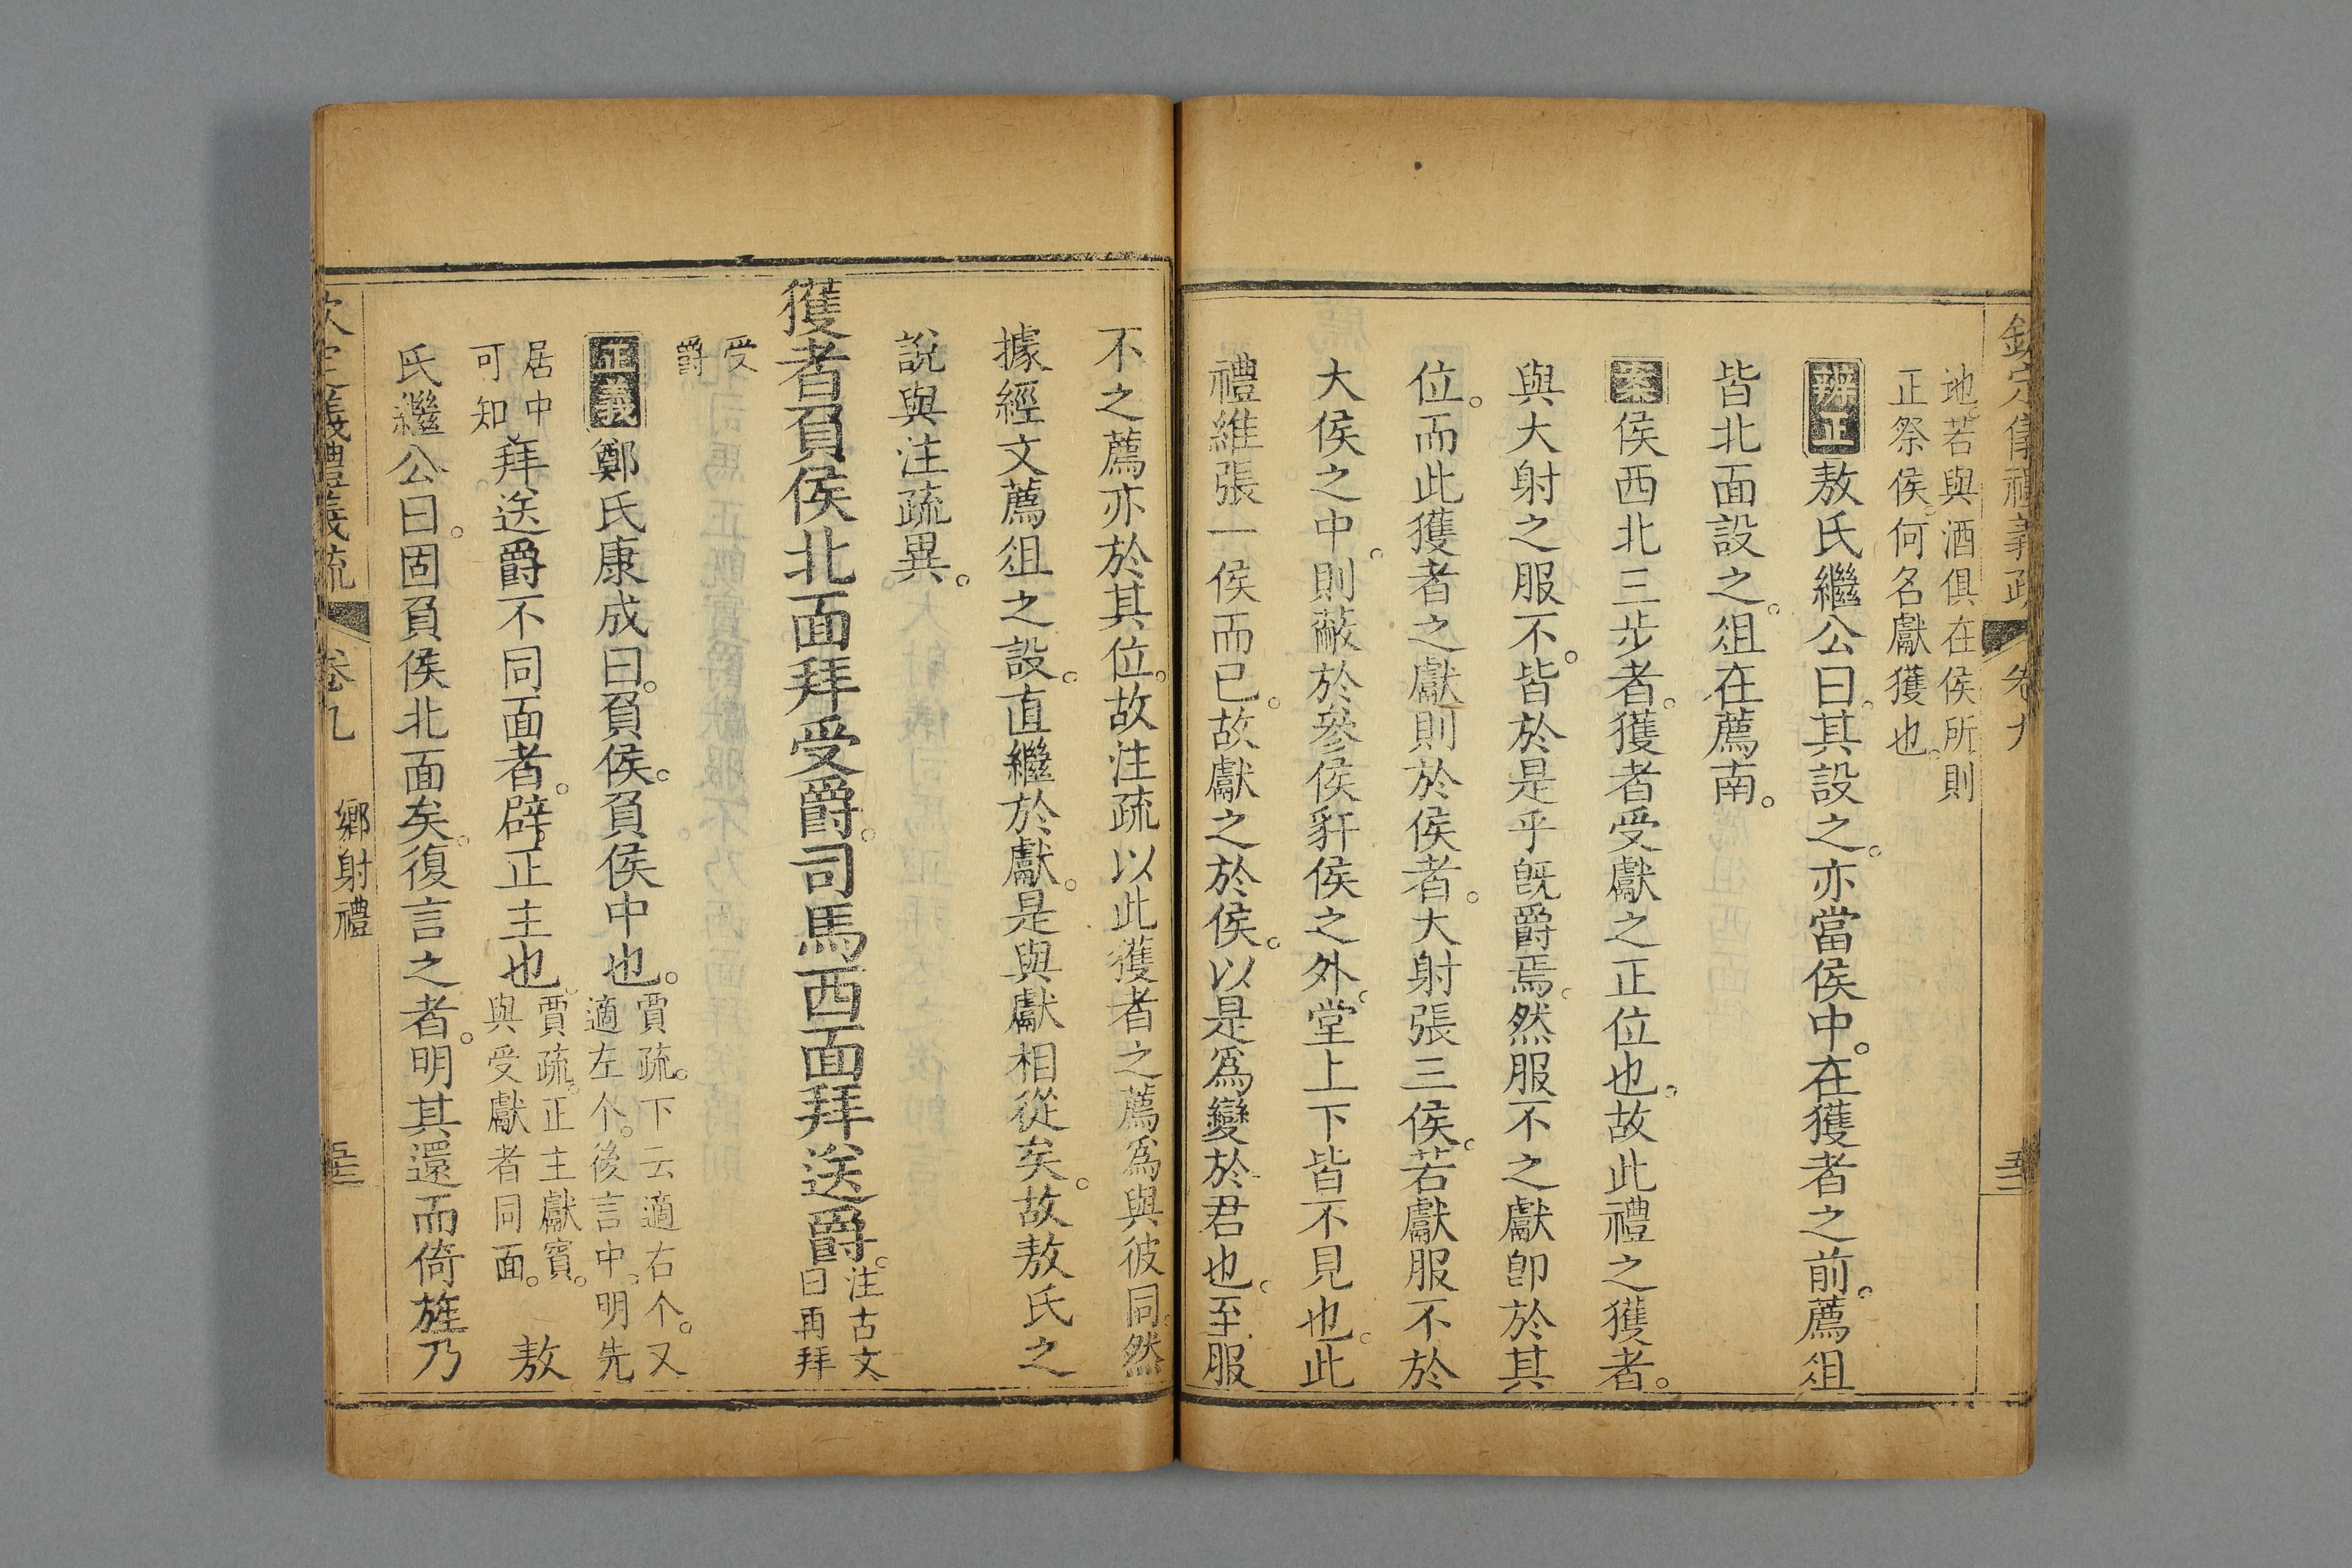 欽定儀禮義疏 卷九 五三
地。若與酒俱在侯所則
正祭侯。何名獻獲也。
辨正敖氏繼公曰。其設之。亦當侯中。在獲者之前。薦俎
皆北面設之。俎在薦南。
案侯西北三步者。獲者受獻之正位也。故此禮之獲者。
與大射之服不。皆於是乎旣爵焉。然服不之獻卽於其
位。而此獲者之獻則於侯者。大射張三侯。若獻服不於
大侯之中。則蔽於參侯豻侯之外。堂上下皆不見也。此
禮維張一侯而已。故獻之於侯。以是爲變於君也。至服
不之薦亦於其位。故注疏以此獲者之薦爲與彼同。然
據經文薦俎之設。直繼於獻。是與獻相從矣。故敖氏之
說與注疏異。
獲者負侯北面拜受爵。司馬西面拜送爵。注古文
曰再拜
受
爵
正義鄭氏康成曰。負侯。負侯中也。賈疏。下云適右个。又
適左个。後言中。明先
居中
可知拜送爵不同面者。辟正主也。賈疏。正主獻賓。
與受獻者同面。敖
氏繼公曰。固負侯北面矣。復言之者。明其還而倚旌乃
欽定儀禮義疏 卷九 鄉射禮